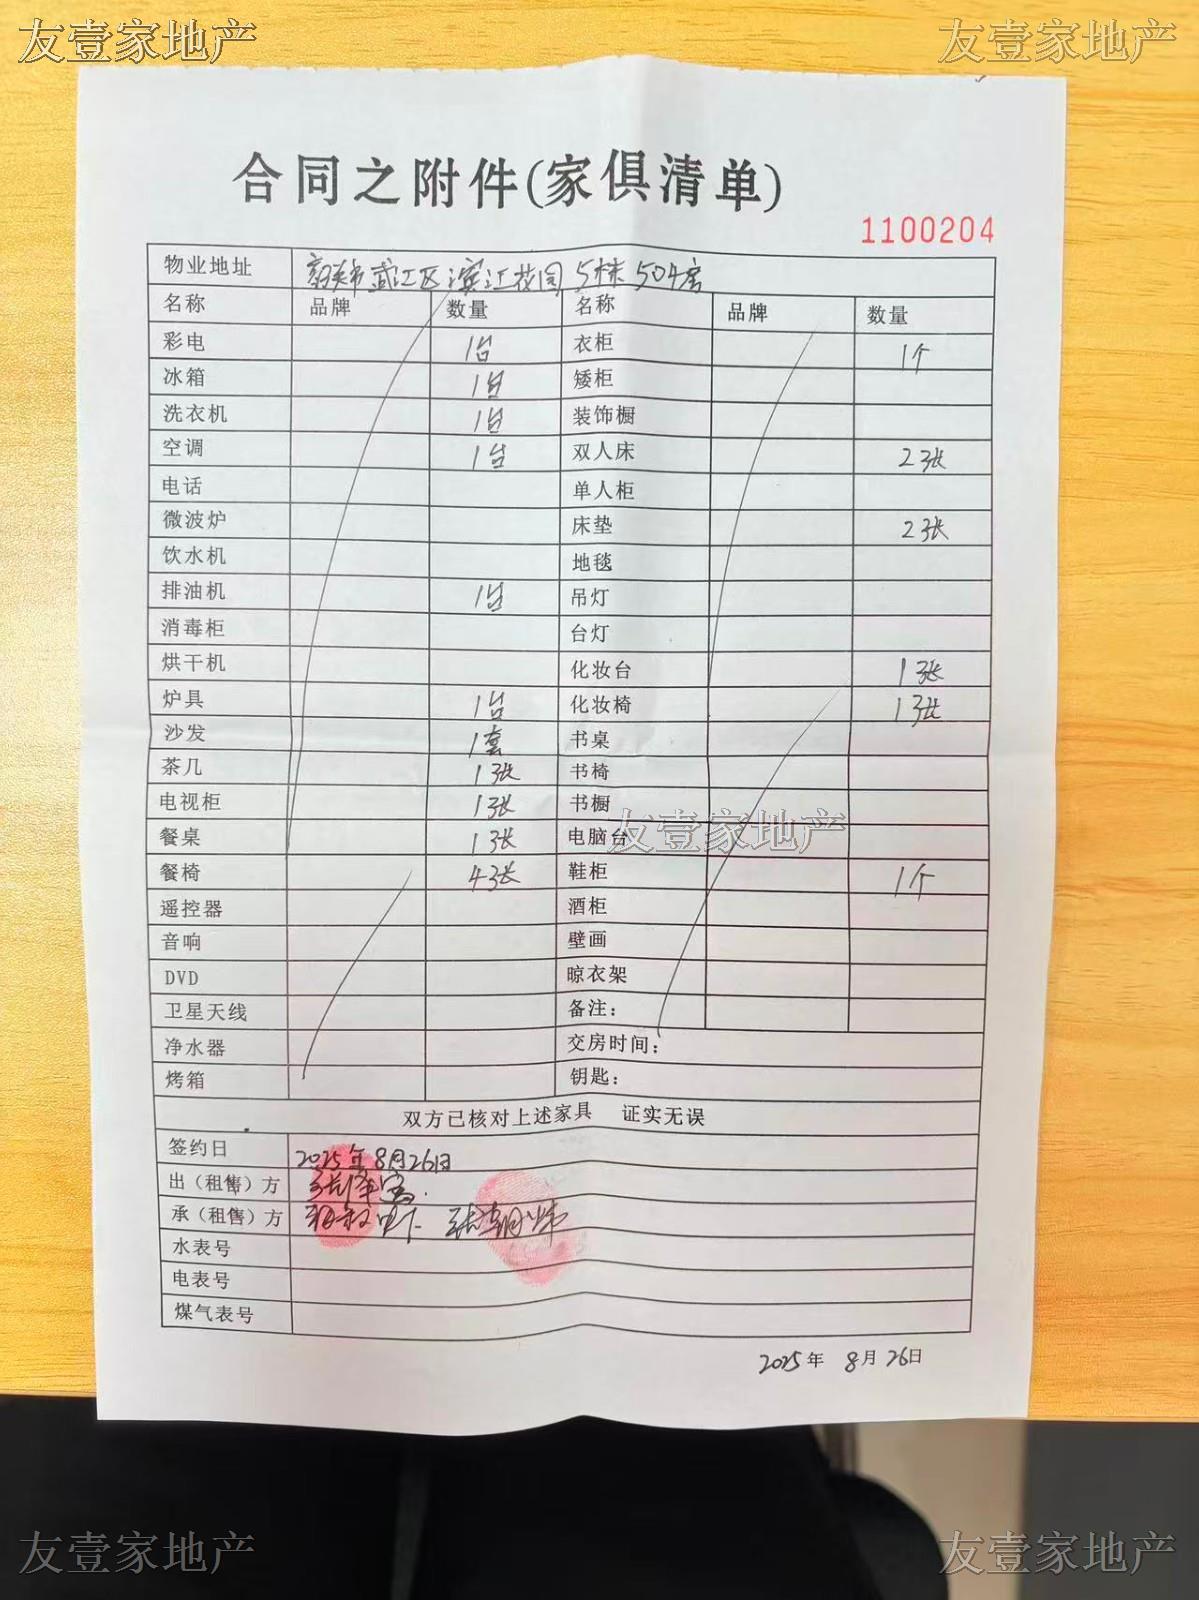 友壹家地产 友壹家地产
合同之附件(家俱清单)
1100204
物业地址 武江区滨江花园5栋504房
名称 品牌 数量 名称 品牌 数量
彩电 1台 衣柜 1个
冰箱 1台 矮柜
洗衣机 1台 装饰橱
空调 1台 双人床 2张
电话 单人柜
微波炉 床垫 2张
饮水机 地毯
排油机 1台 吊灯
消毒柜 台灯
烘干机 化妆台 1张
炉具 1台 化妆椅 1张
沙发 1套 书桌
茶几 1张 书椅
电视柜 1张 书橱
友壹家地产
餐桌 1张 电脑台
餐椅 4张 鞋柜 1个
遥控器 酒柜
音响 壁画
DVD 晾衣架
卫星天线 备注：
净水器 交房时间：
烤箱 钥匙：
双方已核对上述家具 证实无误
签约日 2025年8月26日
出（租售）方
承（租售）方
水表号
电表号
煤气表号
2025年 8月26日
友壹家地产 友壹家地产